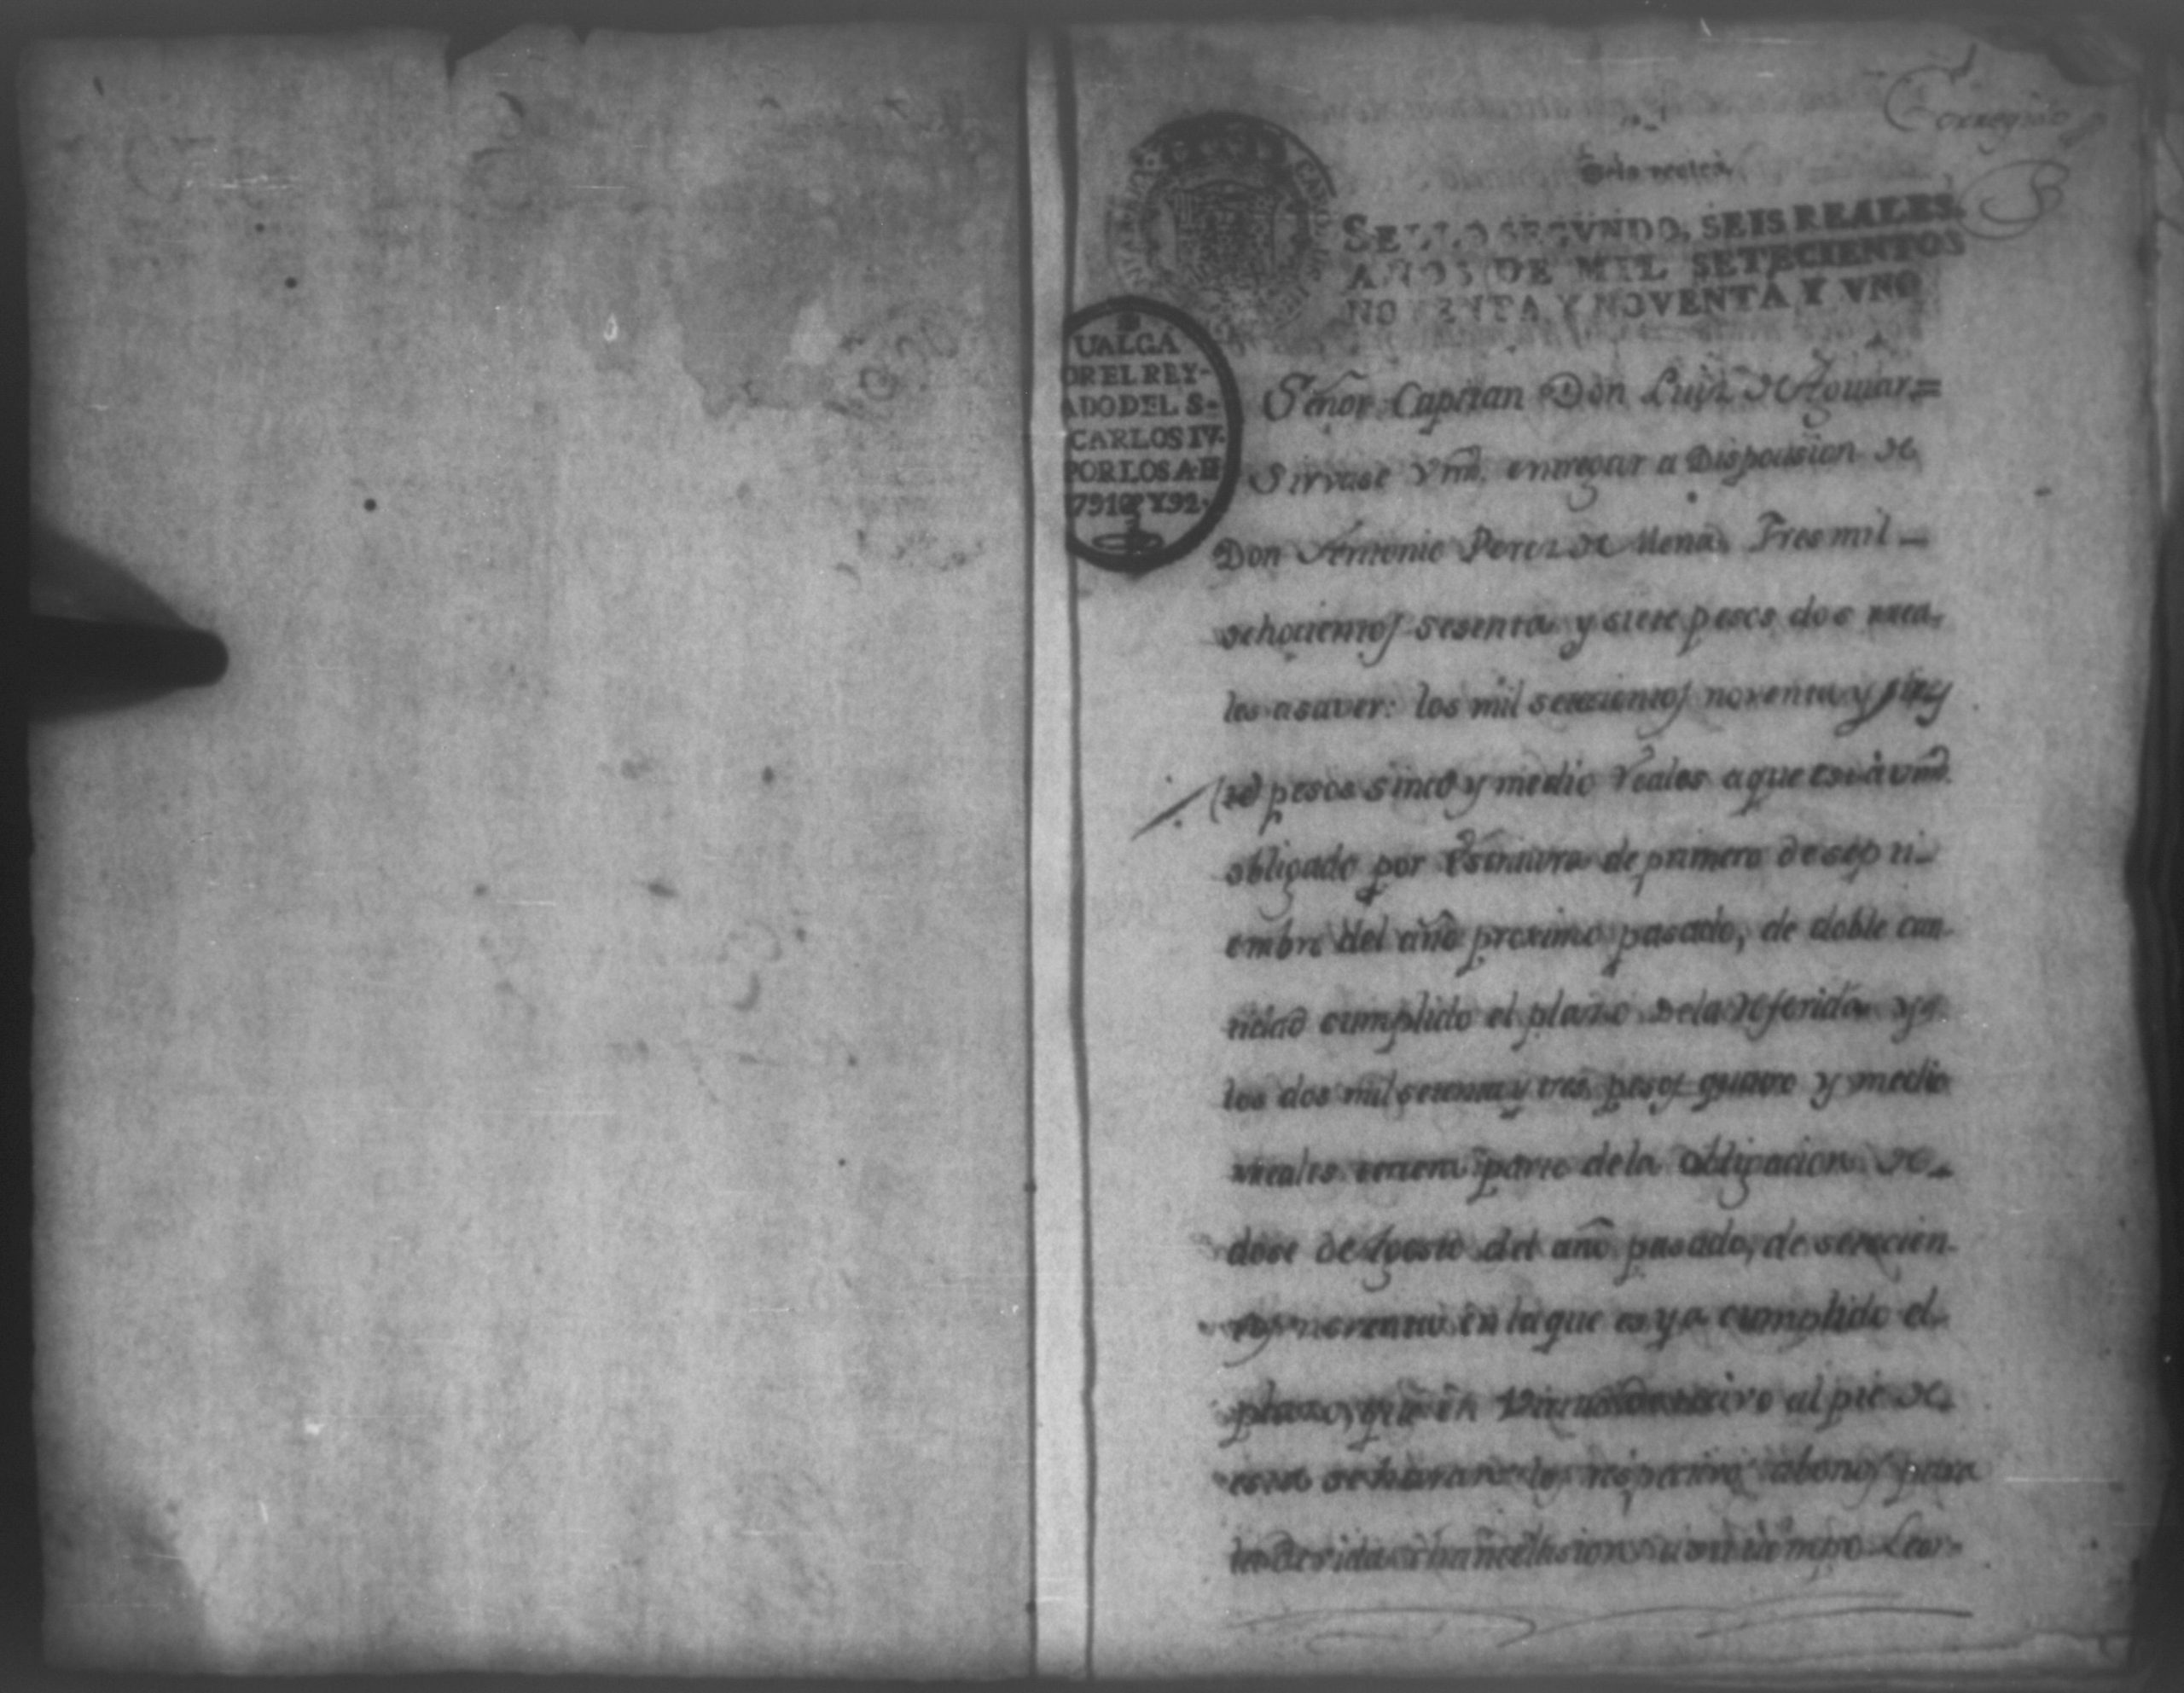 Corregido
Seis reales
SELLO SEGVNDO, SEIS REALES,
AÑOS DE MIL SETECIENTOS
NOVENTA Y NOVENTA Y VNO
UALGA
OR EL REY-
ADO DEL S-
CARLOS IV.
POR LOS A-E
1791 Y 92.
Señor Capitan Don Luiz de Aguiar=
Sirvase Vmd. entregar a Disposision de
Don Antonio Perez de Mena, Tres mil
ochocientos sesenta y siete pesos dos rrea,
les asaver: los mil setecientos noventa y
pesos sinco y medio reales a que está vmd.
obligado por Escritura de primero de septi-
embre del año proximo pasado, de doble can-
tidad cumplido el plazo dela referida y
los dos mil setenta y tres pesos quatro y medio
rreales tercera parte dela obligacion de
dose de Agosto del año pasado, de setecien-
tos noventa en la que es ya cumplido el
plazo, que en Virtud de recivo al pie de
esta se haran los respectivos abonos para
la devida chancelasion a su tiempo Lar-